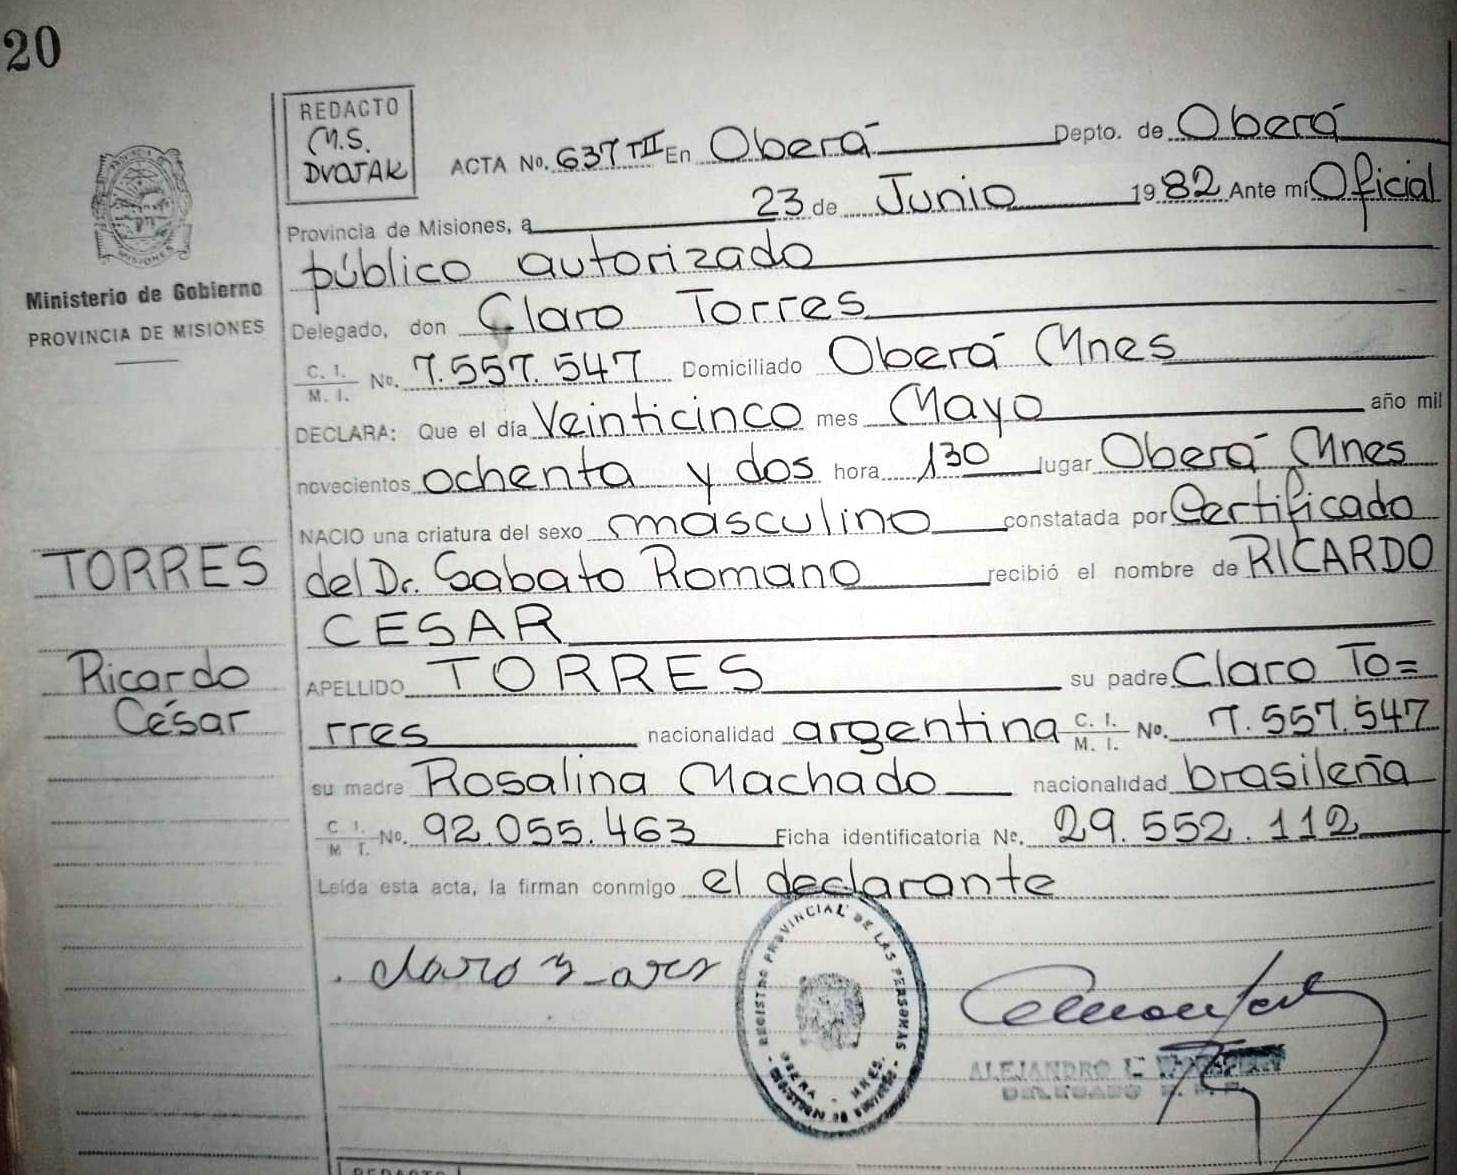 20
REDACTO
M.S.
DVOJAK
ACTA No. 637 TII En Oberá Depto. de Oberá
Provincia de Misiones, a 23 de Junio 1982 Ante mí Oficial
público autorizado
Delegado, don Claro Torres
C. I. / M. I. No. 7.557.547 Domiciliado Oberá Mnes
DECLARA: Que el día Veinticinco mes Mayo año mil
novecientos ochenta y dos hora 130 lugar Oberá Mnes
NACIO una criatura del sexo masculino constatada por Certificado
del Dr. Sabato Romano recibió el nombre de RICARDO
CESAR
APELLIDO TORRES su padre Claro To=
rres nacionalidad argentina C. I. / M. I. No. 7.557.547
su madre Rosalina Machado nacionalidad brasileña
C I. / M I. No. 92.055.463 Ficha identificatoria No. 29.552.112
Leída esta acta, la firman conmigo el declarante
MISIONES
Ministerio de Gobierno
PROVINCIA DE MISIONES
TORRES
Ricardo
César
REGISTRO PROVINCIAL DE LAS PERSONAS
OBERA - MNES.
ALEJANDRO
DELEGADO
REDACTO